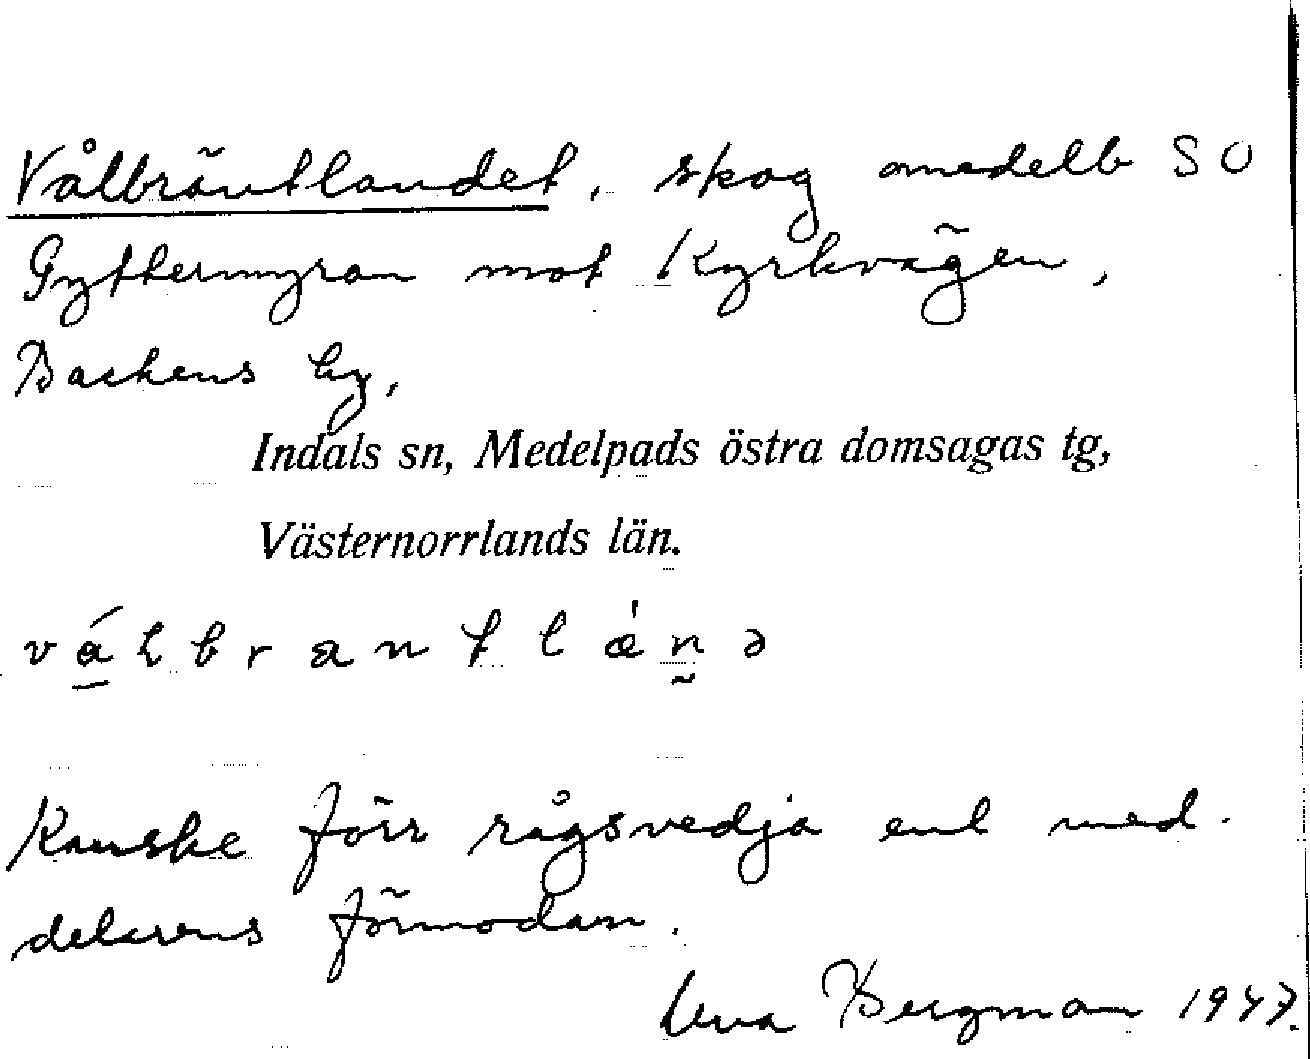 Vålbräntlandet, skog omedelb SO
Gyttermyran mot Kyrkvägen,
Backens by,
Indals sn, Medelpads östra domsagas tg,
Västernorrlands län.
Kanske förr rågsvedja enl med-
delarens förmodan.
Bergman 1947.